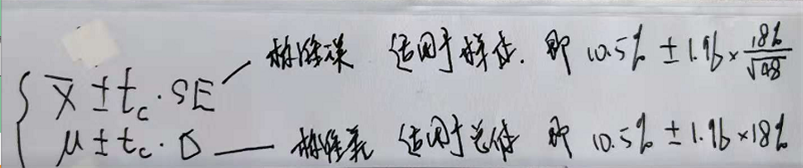 x̄ ± t_c · SE — 标准误 适用于样本. 即 10.5% ± 1.96 × 18%/√48
μ ± t_c · σ — 标准差 适用于总体 即 10.5% ± 1.96 × 18%